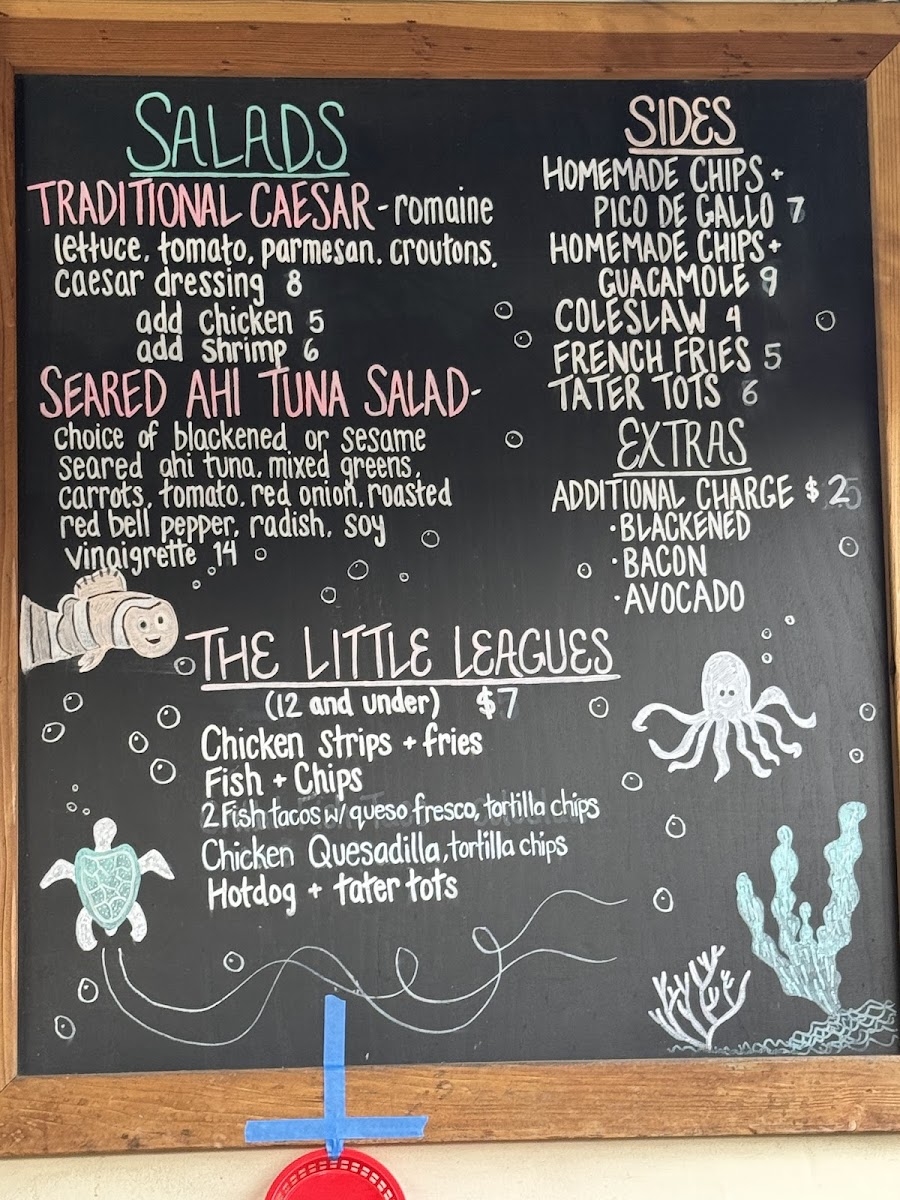 SALADS
TRADITIONAL CAESAR - romaine
lettuce, tomato, parmesan, croutons,
caesar dressing 8
add chicken 5
add shrimp 6
SEARED AHI TUNA SALAD -
choice of blackened or sesame
seared ahi tuna, mixed greens,
carrots, tomato, red onion, roasted
red bell pepper, radish, soy
vinaigrette 14
SIDES
HOMEMADE CHIPS +
PICO DE GALLO 7
HOMEMADE CHIPS +
GUACAMOLE 9
COLESLAW 4
FRENCH FRIES 5
TATER TOTS 6
EXTRAS
ADDITIONAL CHARGE $2
• BLACKENED
• BACON
• AVOCADO
THE LITTLE LEAGUES
(12 and under) $7
Chicken strips + fries
Fish + Chips
2 Fish tacos w/ queso fresco, tortilla chips
Chicken Quesadilla, tortilla chips
Hotdog + tater tots